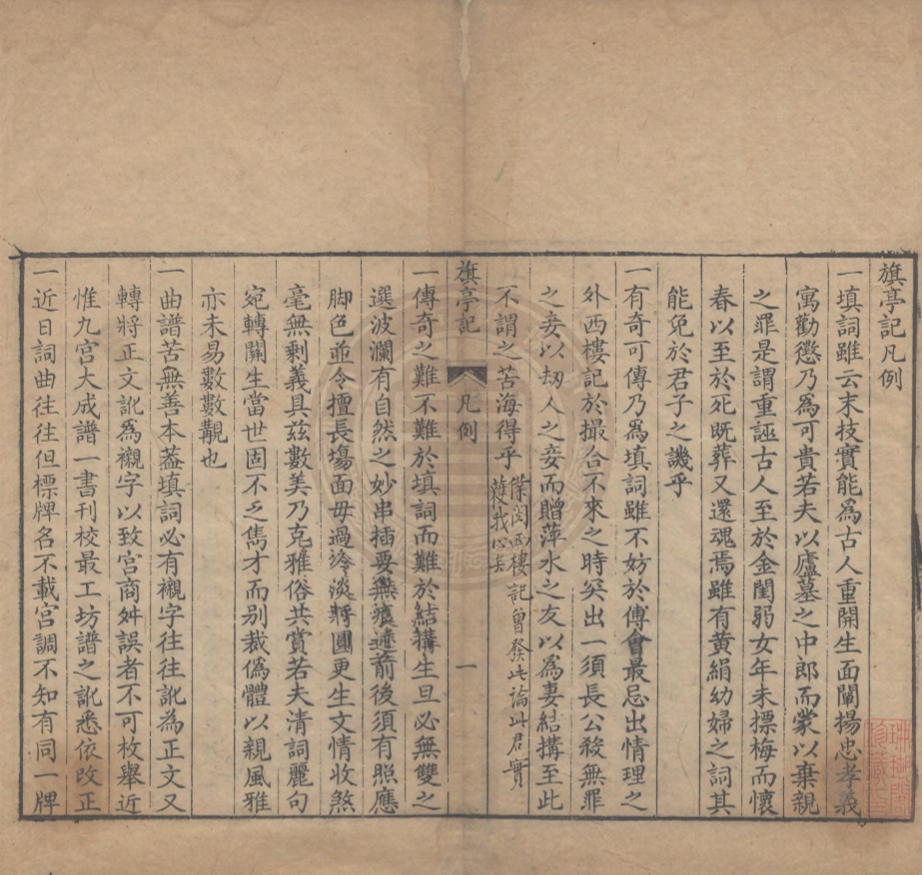 旗亭記凡例
一填詞雖云末技實能為古人重開生面闡揚忠孝義
寓勸懲乃為可貴若夫以廬墓之中郎而蒙以棄親
之罪是謂重誣古人至於金閨弱女年未摽梅而懷
春以至於死既葬又還魂焉雖有黃絹幼婦之詞其
能免於君子之譏乎
一有奇可傳乃為填詞雖不妨於傅會最忌出情理之
外西樓記於撮合不來之時突出一須長公殺無罪
之妾以刼人之妾而贈萍水之友以為妻結搆至此
不謂之苦海得乎
僕閱西樓記曾發此論此君實
獲我心矣
旗亭記
凡例
一
一傳奇之難不難於填詞而難於結搆生旦必無雙之
選波瀾有自然之妙串插要無痕迹前後須有照應
脚色並令擅長塲面毋過冷淡將圓更生文情收煞
毫無剩義具茲數美乃克雅俗共賞若夫清詞麗句
宛轉關生當世固不乏雋才而別裁偽體以親風雅
亦未易數數覯也
一曲譜苦無善本葢填詞必有襯字往往訛為正文又
轉將正文訛為襯字以致宮商舛誤者不可枚舉近
惟九宮大成譜一書刊校最工坊譜之訛悉依改正
一近日詞曲往往但標牌名不載宮調不知有同一牌